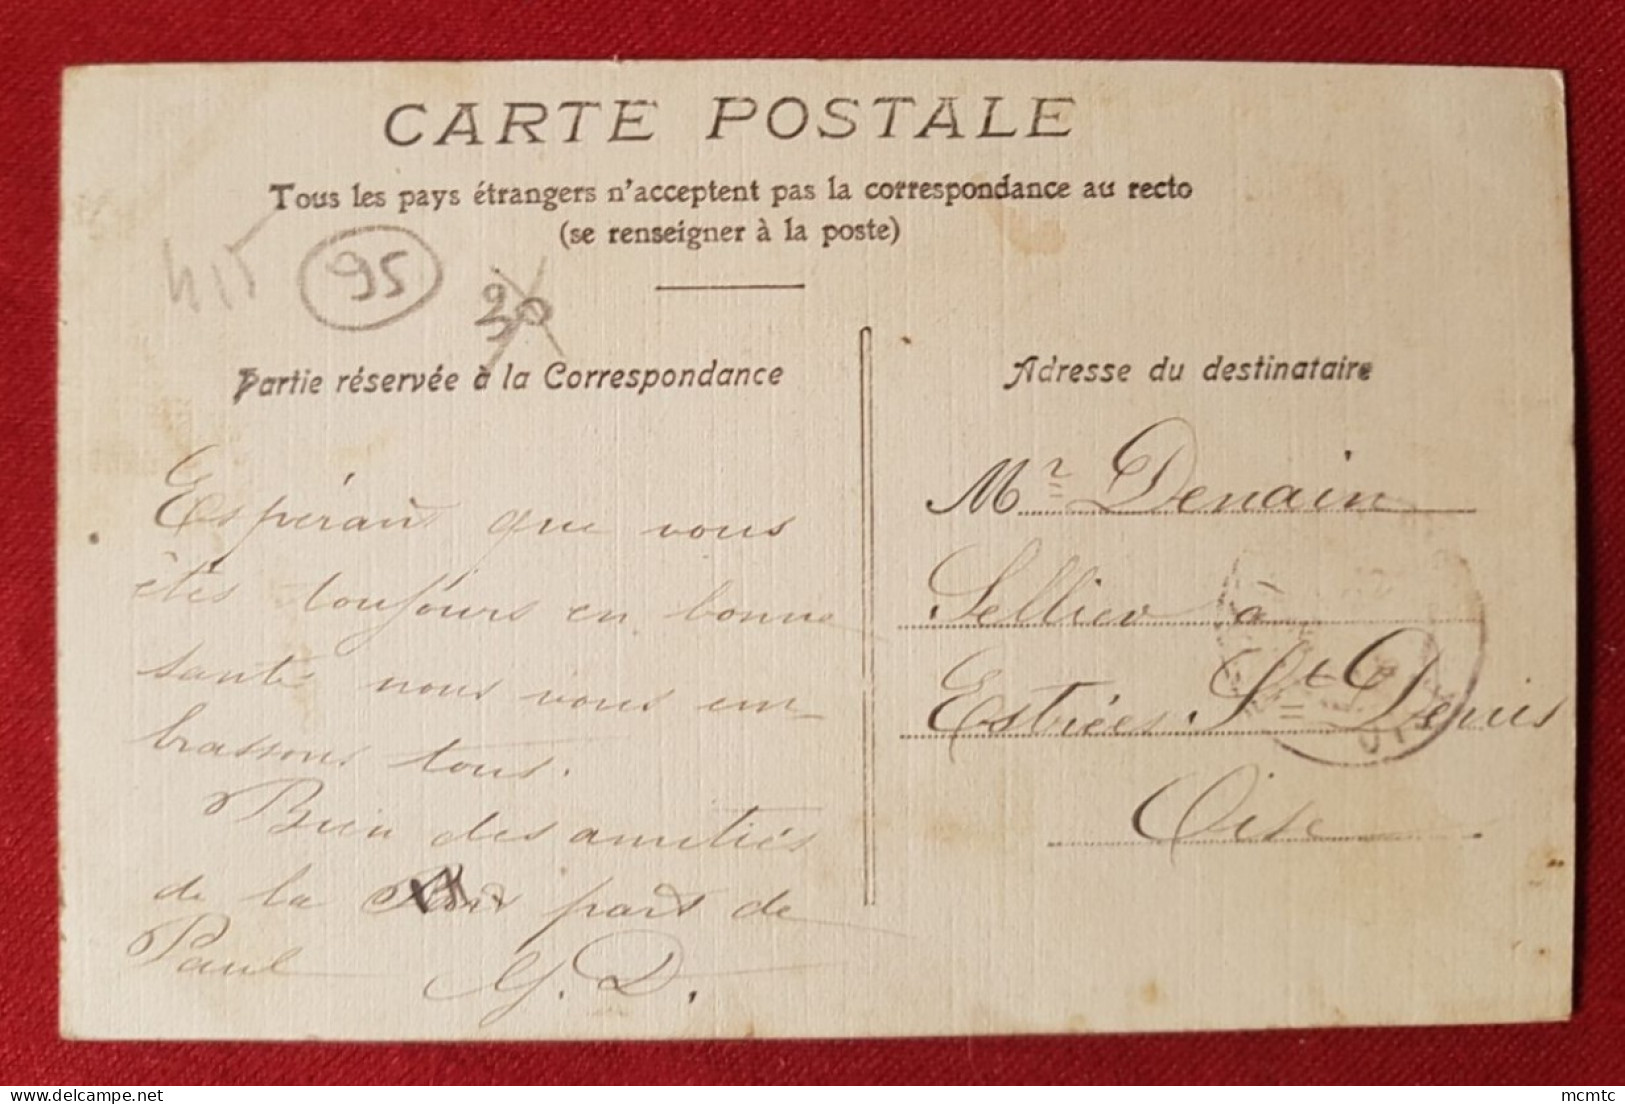 CARTE POSTALE
Tous les pays étrangers n'acceptent pas la correspondance au recto
(se renseigner à la poste)
95
20
Partie réservée à la Correspondance
Espérant que vous
êtes toujours en bonne
santé nous vous em-
brassons tous.
Bien des amitiés
de la part de
Paul G. D.
Adresse du destinataire
Mr Denain
Sellier à
Estrées St Denis
Oise
mcmtc